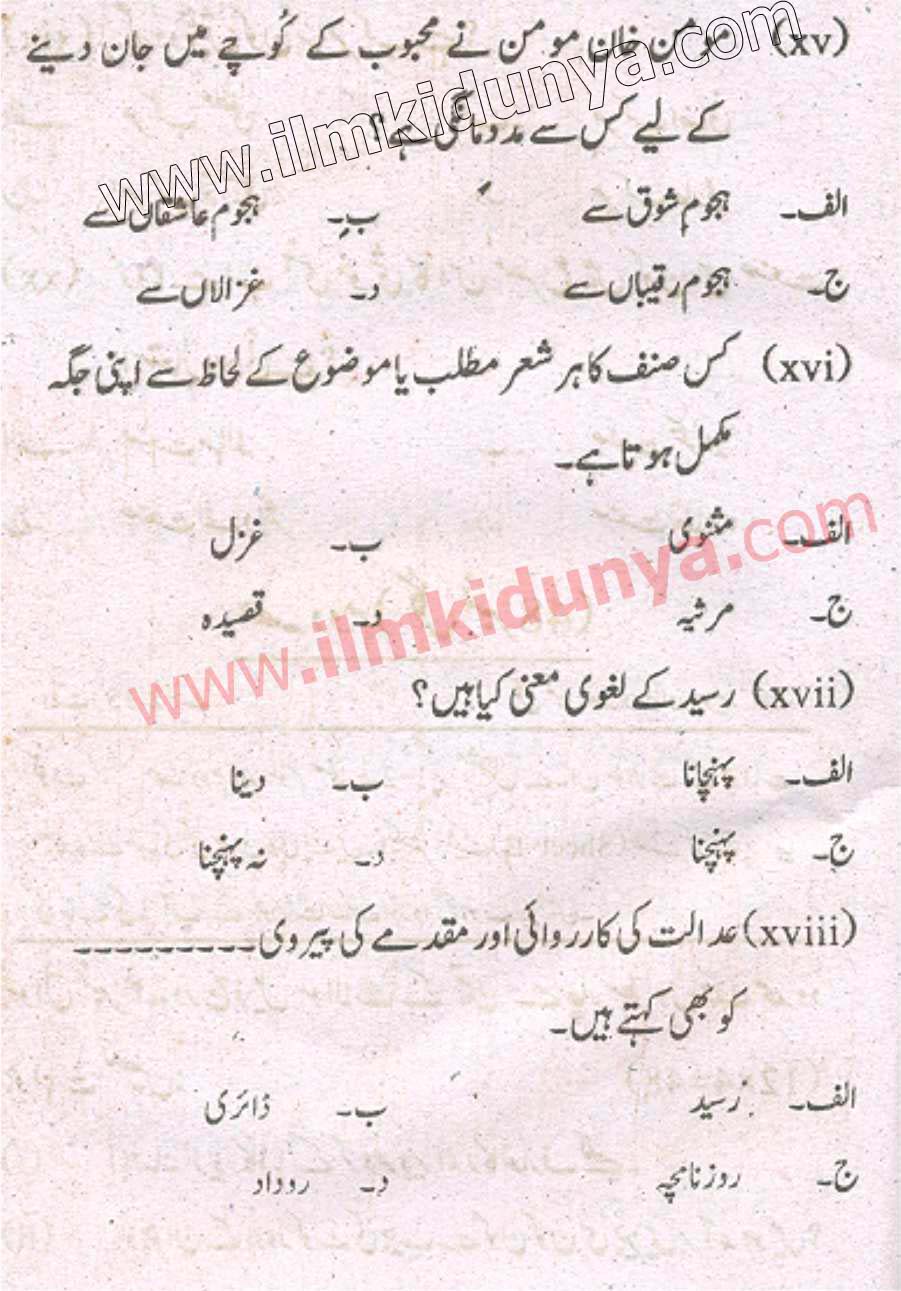 (xv) مومن خان مومن نے محبوب کے کُوچے میں جان دینے
کے لیے کس سے مدد مانگی ہے؟
الف۔ ہجومِ شوق سے ب۔ ہجوم عاشقاں سے
ج۔ ہجوم رقیباں سے د۔ غزالاں سے
(xvi) کس صنف کا ہر شعر مطلب یا موضوع کے لحاظ سے اپنی جگہ
مکمل ہوتا ہے۔
الف۔ مثنوی ب۔ غزل
ج۔ مرثیہ د۔ قصیدہ
(xvii) رسید کے لغوی معنی کیا ہیں؟
الف۔ پہنچانا ب۔ دینا
ج۔ پہنچنا د۔ نہ پہنچنا
(xviii) عدالت کی کارروائی اور مقدمے کی پیروی ۔۔۔۔۔۔۔۔۔
کو بھی کہتے ہیں۔
الف۔ رسید ب۔ ڈائری
ج۔ روزنامچہ د۔ روداد
www.ilmkidunya.com
www.ilmkidunya.com